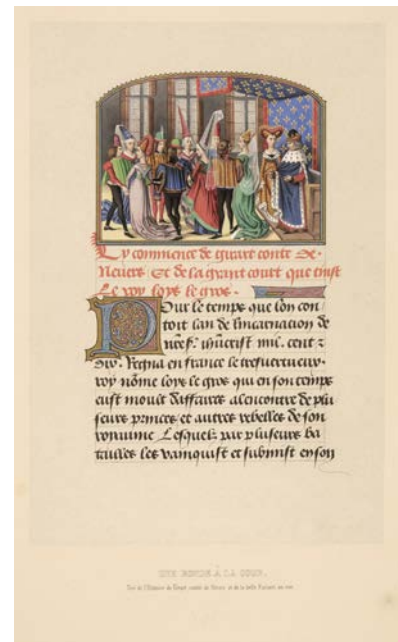 Cy commence de girart conte de
Nevers et de la grant court que tinst
Le roy loys le gros.
Pour le temps que lon con
toit lan de lincarnacion de
mil. cent
Regna en france le tresvertueux
roy nome loys le gros qui en son temps
eust moult daffaires alencontre de plu
seurs princes et autres rebelles de son
royaume Lesquelz par pluseurs ba
tailles les vainquist et submist en son
UNE RONDE À LA COUR.
Tiré de l'Histoire de Gérard comte de Nevers, et de la belle Euriant, sa mie.